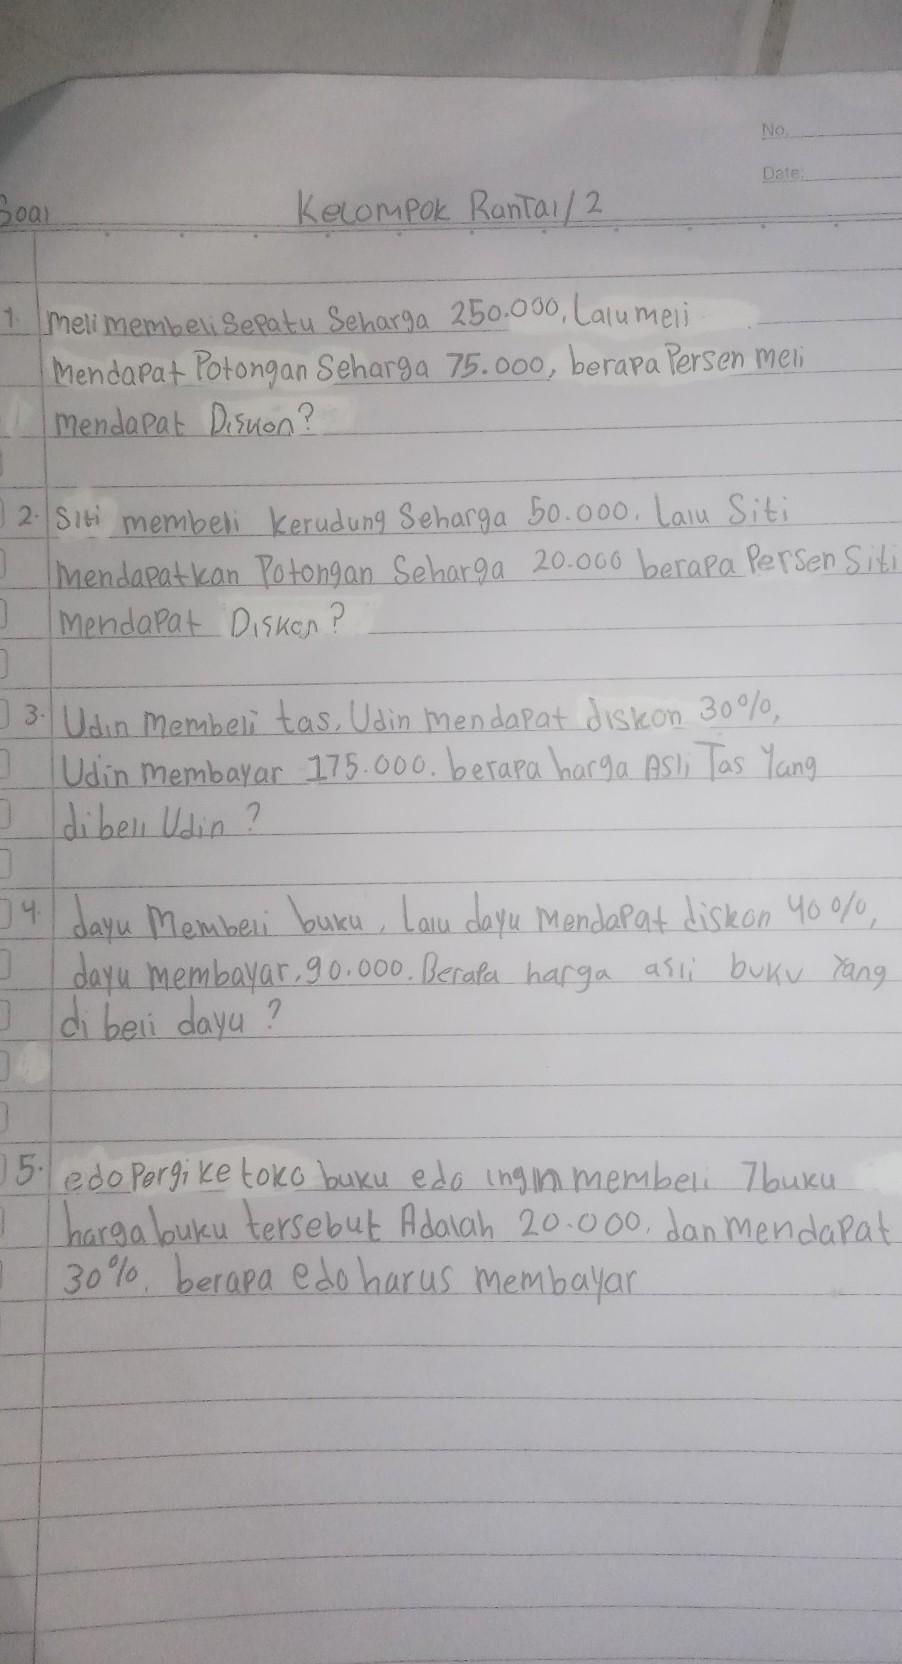 No.
Date:
Soal Kelompok Rantai / 2
1. meli membeli Sepatu Seharga 250.000, Lalu meli
Mendapat Potongan Seharga 75.000, berapa Persen meli
mendapat Diskon?
2. Siti membeli kerudung Seharga 50.000. Lalu Siti
Mendapatkan Potongan Seharga 20.000 berapa Persen Siti
Mendapat Diskon?
3. Udin Membeli tas, Udin mendapat diskon 30%,
Udin membayar 175.000. berapa harga Asli Tas Yang
dibeli Udin ?
4. dayu Membeli buku, Lalu dayu mendapat diskon 40%,
dayu membayar, 90.000. Berapa harga asli buku Yang
di beli dayu ?
5. edo Pergi ke toko buku edo ingin membeli 7 buku
harga buku tersebut Adalah 20.000. dan mendapat
30%. berapa edo harus membayar